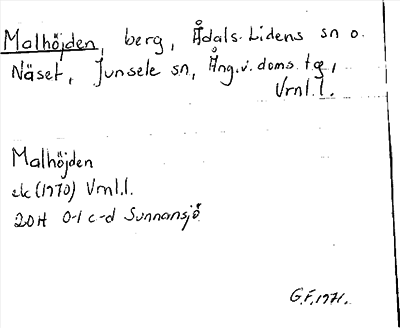 Malhöjden, berg, Ådals-Lidens sn o.
Näset, Junsele sn, Ång.v.doms.tg,
Vrnl.l.
Malhöjden
ek (1970) Vrnl.l.
20H 0-1 c-d Sunnansjö
G.F. 1971.